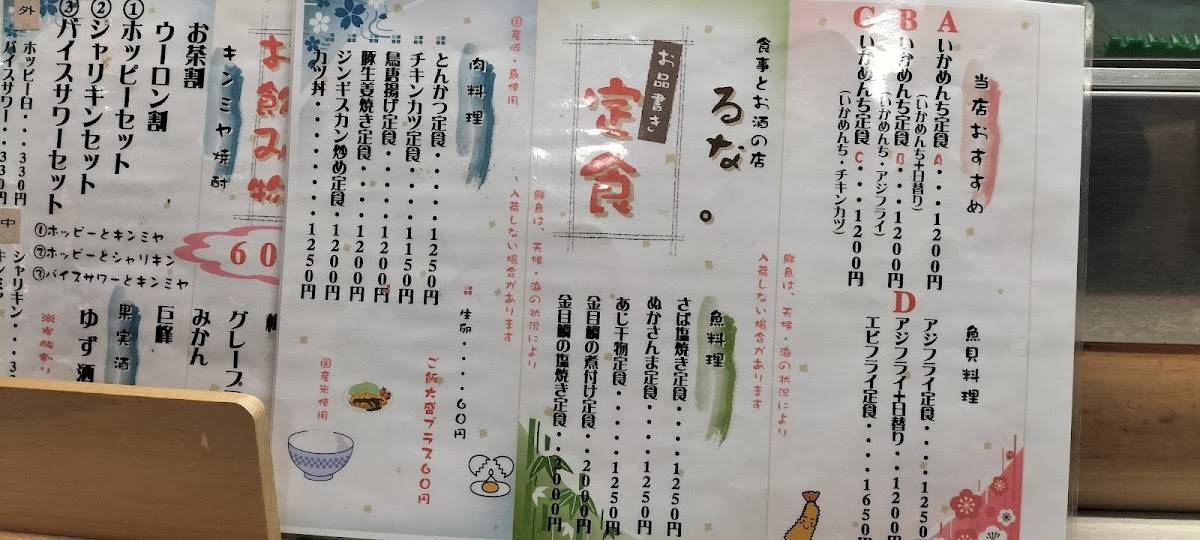 当店おすすめ
A
いかめんち定食A・・・1200円
(いかめんち+日替り)
B
いかめんち定食B・・・1200円
(いかめんち・アジフライ)
C
いかめんち定食C・・・1200円
(いかめんち・チキンカツ)
魚貝料理
アジフライ定食・・・・1250
D
アジフライ+日替り・・1200円
エビフライ定食・・・1650円
鮮魚は、天候・海の状況により
入荷しない場合があります
食事とお酒の店
るな。
お品書き
定食
魚料理
さば塩焼き定食・・・1250円
ぬかさんま定食・・・1250円
あじ干物定食・・・・・1250円
金目鯛の煮付け定食・・2000円
金目鯛の塩焼き定食・・2000円
鮮魚は、天候・海の状況により
入荷しない場合があります
国産豚・鳥使用
肉料理
とんかつ定食・・・・1250円
チキンカツ定食・・・・1150円
鳥唐揚げ定食・・・・・1200円
豚生姜焼き定食・・・・1200円
ジンギスカン炒め定食・・1200円
カツ丼・・・・・・・・・1250円
生卵・・・・・60円
ご飯大盛プラス60円
国産米使用
お飲み物
キンミヤ焼酎
60
お茶割
ウーロン割
①ホッピーセット
②シャリキンセット
③バイスサワーセット
①ホッピーとキンミヤ
②ホッピーとシャリキン
③バイスサワーとキンミヤ
外
ホッピー白・・・330円
バイスサワー・・330円
中
シャリキン・・・3
グレープ
みかん
巨峰
果実酒
ゆず酒